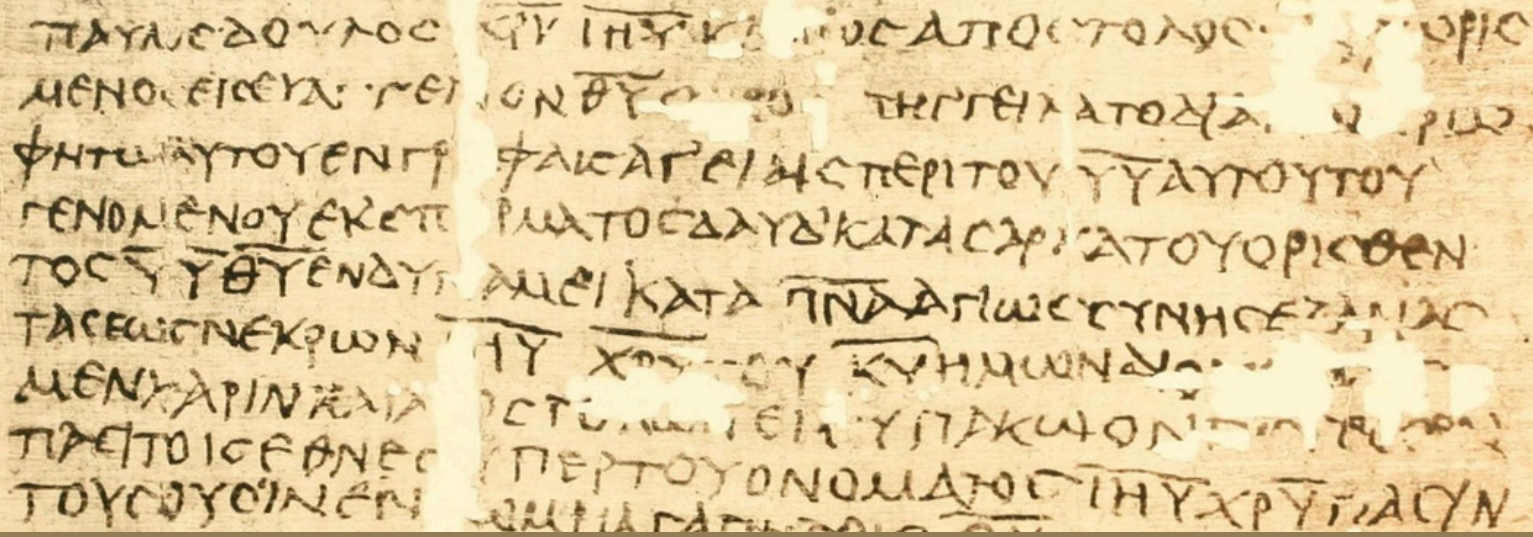 ΠΑΥΛΟϹ ΔΟΥΛΟϹ Χ̅Ρ̅Υ̅ Ι̅Η̅Υ̅ ΑΠΟϹΤΟΛΟϹ ΩΡΙϹ
ΜΕΝΟϹ ΕΙϹ ΕΥΑΓΓΕΛΙΟΝ Θ̅Υ̅ ΠΗΓΓΕΙΛΑΤΟ ΔΙΑ ΠΡΩ
ΦΗΤΩΝ ΑΥΤΟΥ ΕΝ ΓΡΑΦΑΙϹ ΑΓΕΙΑΙϹ ΠΕΡΙ ΤΟΥ Υ̅Υ̅ ΑΥΤΟΥ ΤΟΥ
ΓΕΝΟΜΕΝΟΥ ΕΚ ϹΠΕΡΜΑΤΟϹ ΔΑΥΔ' ΚΑΤΑ ϹΑΡΚΑ ΤΟΥ ΟΡΙϹΘΕΝ
ΤΟϹ Υ̅Υ̅ Θ̅Υ̅ ΕΝ ΔΥΝΑΜΕΙ ΚΑΤΑ Π̅Ν̅Α̅ ΑΓΙΩϹϹΥΝΗϹ ΕΞ ΑΝΑϹ
ΤΑϹΕΩϹ ΝΕΚΡΩΝ Ι̅Η̅Υ̅ Χ̅Ρ̅Υ̅ ΤΟΥ Κ̅Υ̅ ΗΜΩΝ
ΜΕΝ ΧΑΡΙΝ ΚΑΙ ΑΠΟϹΤΟΛΗΝ ΕΙϹ ΥΠΑΚΩΗΝ
ΠΑϹΙ ΤΟΙϹ ΕΘΝΕϹΙ ΥΠΕΡ ΤΟΥ ΟΝΟΜΑΤΟϹ Ι̅Η̅Υ̅ Χ̅Ρ̅Υ̅ ΠΑϹΙΝ
ΤΟΙϹ ΟΥϹΙΝ ΕΝ ΡΩΜΗ